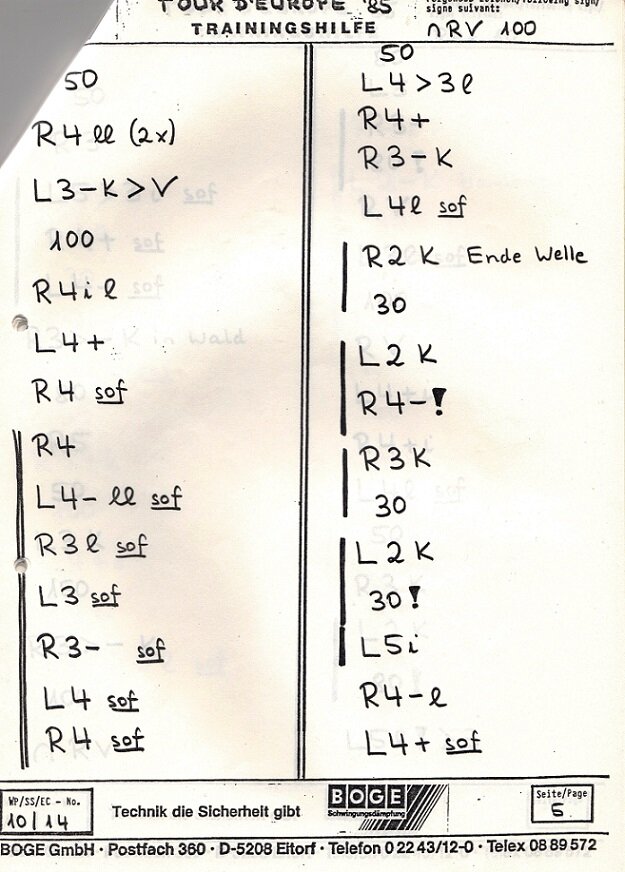 TOUR D'EUROPE '85
TRAININGSHILFE
signe suivant:
∩ RV 100
50
R4 ll (2x)
L3-K > V
100
R4i l
L4+
R4 sof
R4
L4- ll sof
R3l sof
L3 sof
R3- sof
L4 sof
R4 sof
50
L4 > 3l
R4+
R3-K
L4l sof
R2 K Ende Welle
30
L2 K
R4-!
R3K
30
L2 K
30!
L5i
R4-l
L4+ sof
WP/SS/EC - No.
10/14
Technik die Sicherheit gibt
BOGE
Schwingungsdämpfung
Seite/Page
5
BOGE GmbH · Postfach 360 · D-5208 Eitorf · Telefon 0 22 43/12-0 · Telex 08 89 572